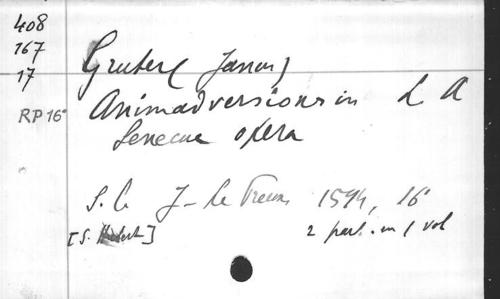 408
167
17
RP 16°
Gruter ( Janus)
Animadversions in L A
Senecae opera
S. l. J. Le Preux 1594, 16°
[S. ]
2 part. en 1 vol